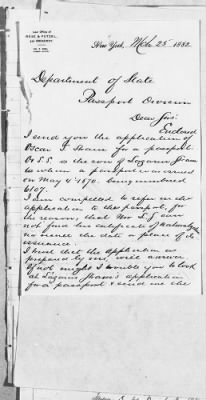 Law Office of
New York, Mch. 25 1882.
Department of State
Passport Division
Dear Sir:
Enclosed
I send you the application of
Oscar S. for a passport.
O. S. S. is the son of Lazarus
to whom a passport was issued
on May 4th 1870. being numbered
6107.
I am compelled to refer in his
application to that passport, for
the reason, that Mr. L. S. can
not find his certificate of naturaliz
no recall the date or place of its
issuance.
I trust that the Application as
prepared by me, will answer.
If not might I trouble you to look
at Lazarus application
for a passport & send me the